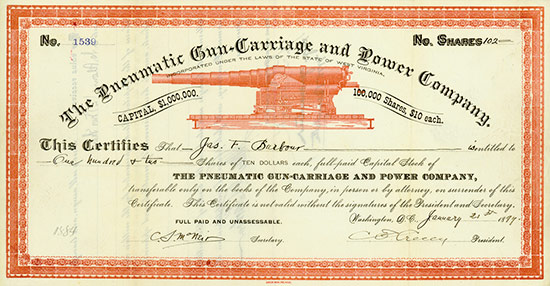 No. 1539
No. Shares 102
The Pneumatic Gun-Carriage and Power Company.
INCORPORATED UNDER THE LAWS OF THE STATE OF WEST VIRGINIA.
CAPITAL, $1,000,000.
100,000 Shares, $10 each.
This Certifies That Jas. F. Barbour is entitled to
One hundred & two Shares of TEN DOLLARS each, full-paid Capital Stock of
THE PNEUMATIC GUN-CARRIAGE AND POWER COMPANY,
transferable only on the books of the Company, in person or by attorney, on surrender of this
Certificate. This Certificate is not valid without the signatures of the President and Secretary.
FULL PAID AND UNASSESSABLE.
Washington, D.C. January 21st 1899
1584
Secretary.
President.